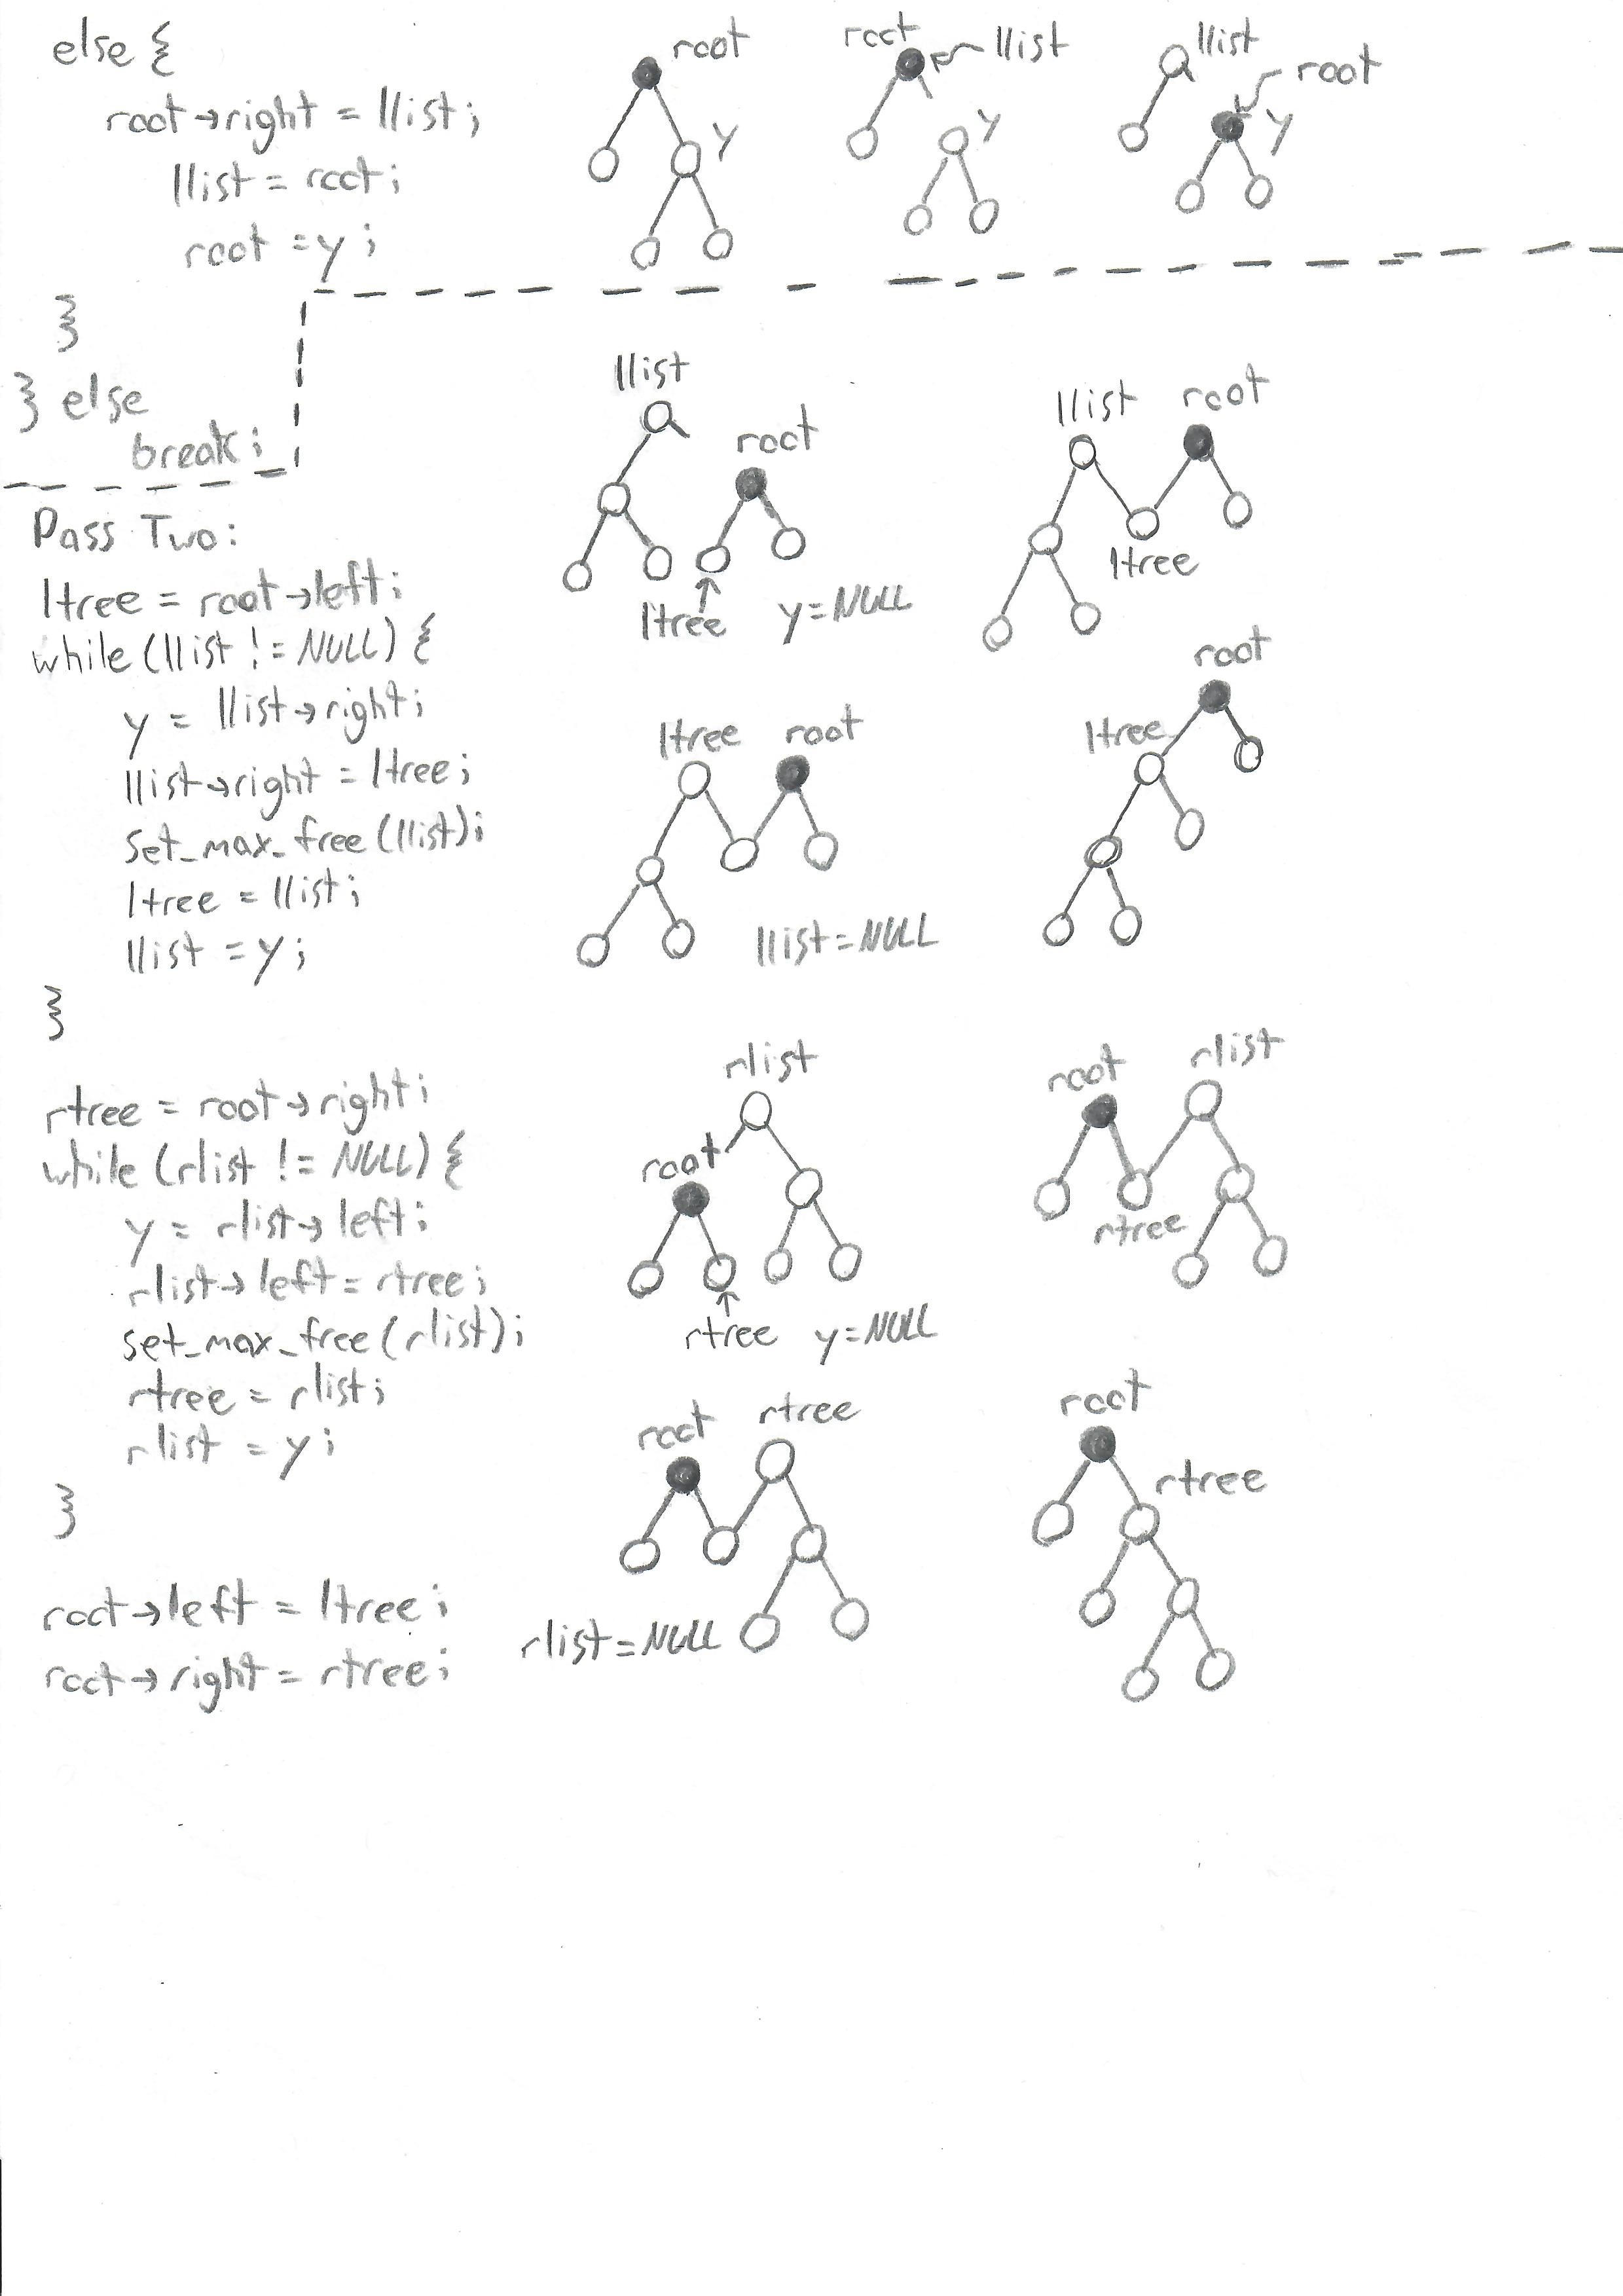 else {
root→right = llist;
llist = root;
root = y;
}
} else
break;
root
y
root
llist
y
llist
root
y
Pass Two:
ltree = root→left;
while (llist != NULL) {
y = llist→right;
llist→right = ltree;
set_max_free(llist);
ltree = llist;
llist = y;
}
llist
root
ltree
y=NULL
llist
root
ltree
ltree
root
llist=NULL
root
ltree
rtree = root→right;
while (rlist != NULL) {
y = rlist→left;
rlist→left = rtree;
set_max_free(rlist);
rtree = rlist;
rlist = y;
}
root→left = ltree;
root→right = rtree;
rlist
root
rtree
y=NULL
root
rlist
rtree
root
rtree
rlist=NULL
root
rtree